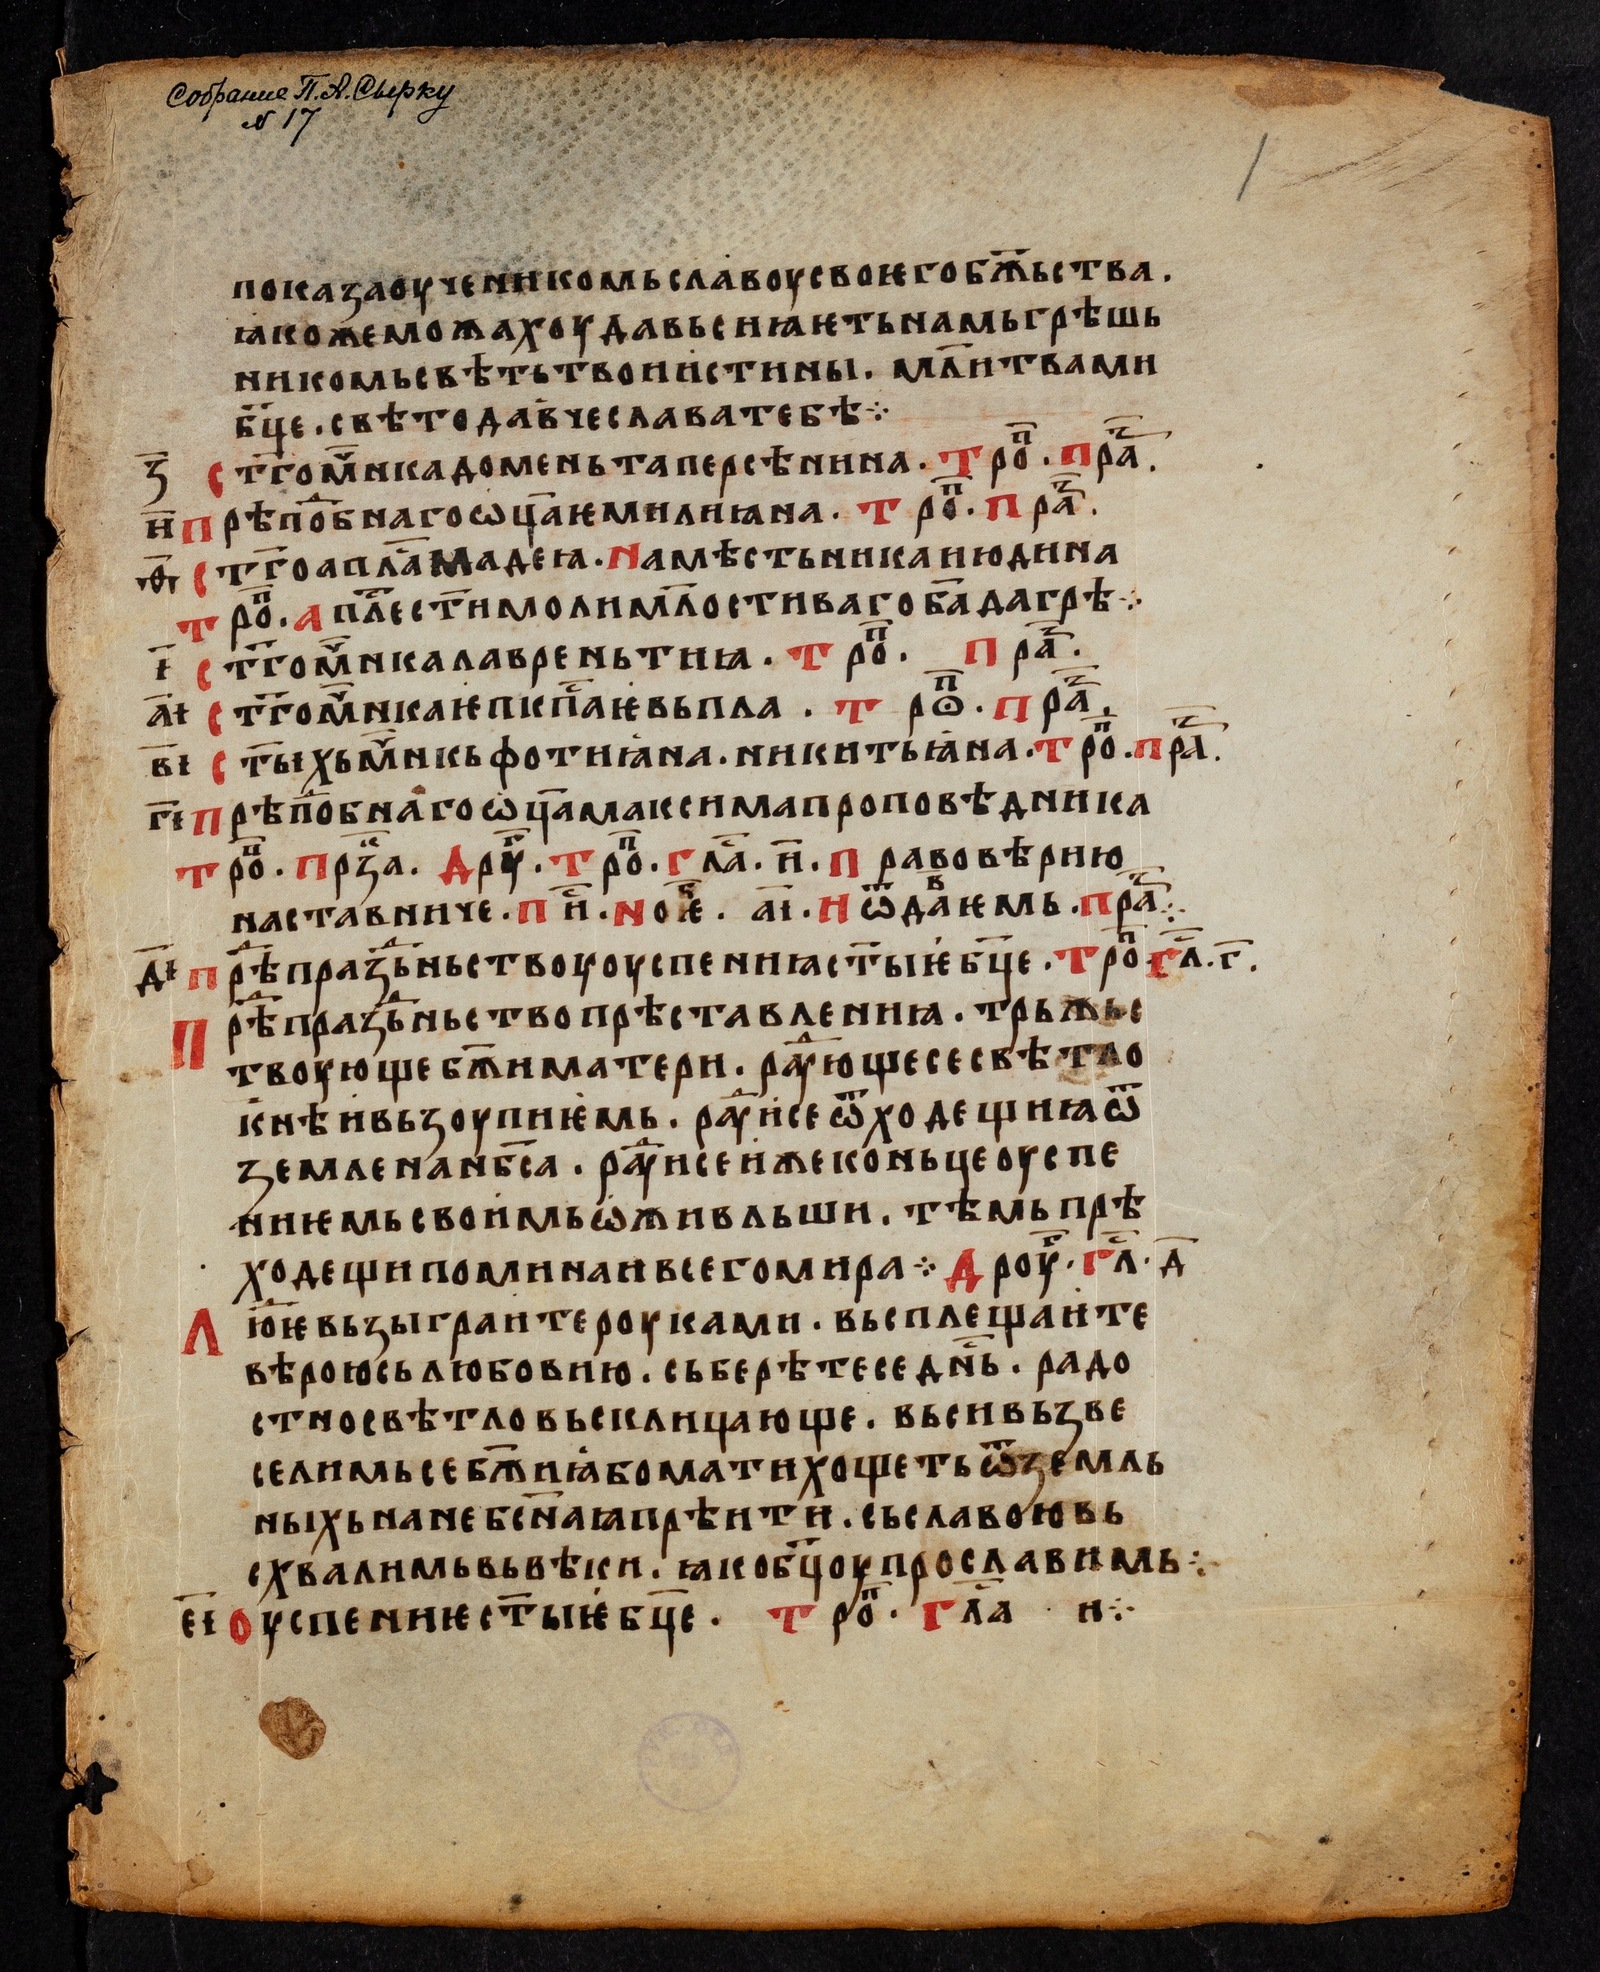 Собрание П. А. Сырку
№ 17
1
показаоученикомьславоусвоѥгобж҃ьства.
ꙗкожеможахоудавьсиꙗѥтьнамьгрѣшь
никомьсвѣтьтвоиистины. мл҃итвами
бц҃е.свѣтодавчеславатебѣ⁘
з҃ ст҃гом҃чникадоменьтаперсѣнина. троп҃. праз҃.
и҃ прѣпод҃бнагоѡц҃аѥмилиꙗна. троп҃. праз҃.
ѳ҃ ст҃гоапл҃самадеꙗ.намѣстьникаиюдина
троп҃. апл҃есст҃имолимл҃остивагоба҃дагрѣ⁘
і҃ ст҃гом҃чникалавреньтиꙗ. троп҃. праз҃.
а҃і ст҃гом҃чникаѥпкпс҃аѥвьпла . трѡп҃. праз҃.
в҃і ст҃ыхьм҃чникьфотиꙗна.никитьꙗна.троп҃.праз҃.
г҃і прѣпод҃бнагоѡц҃амаксимапроповѣдника
троп҃. прзс҃а. дроуг҃. троп҃. глас҃. и҃. правовѣрию
наставниче.пс҃и.нокв҃е. а҃і. иѿдаваѥмь.праз҃⁘
д҃і прѣд҃празд҃ньствооуоуспениꙗст҃ыѥбц҃е. троп҃ глс҃.г҃.
прѣд҃празд҃ньствопрѣставлениꙗ. трьжьс
твоующебж҃иматери. рад҃ующесесвѣтло
кнѣивьзоупиѥмь. рад҃уисеѿходещиꙗѿ
земленанб҃са. рад҃уисеижеконьцеоуспе
ниѥмьсвоимьѡживльши. тѣмьпрѣ
ходещипоминаивсегомира⁘ дроуг҃. глс҃. д҃
люд҃ѥвьзыграитероуками. вьсплещаите
вѣроюсьлюбовию. сьберѣтеседнс҃ь. радо
стносвѣтловьсклицающе. вьсивьзве
селимьсебж҃иꙗбоматихощетьѿземль
ныхьнанебсн҃аꙗпрѣити. сьславоювь
схвалимьвьвѣки. ꙗкобц҃оупрославимь⁘
е҃і оуспениѥст҃ыѥбц҃е. троп҃. глс҃а и⁘